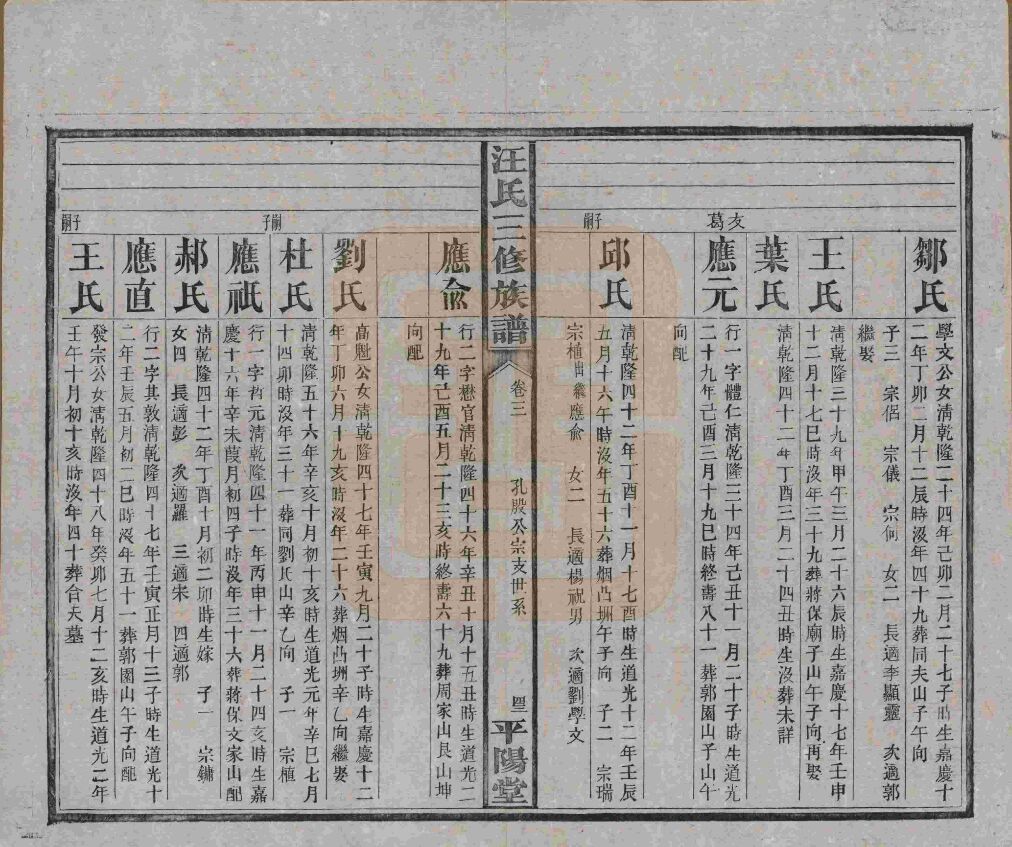 鄒氏
學文公女淸乾隆二十四年己卯二月二十七子時生嘉慶十
二年丁卯二月十二辰時沒年四十九葬同夫山子午向
子三　宗侶　宗儀　宗何　女二　長適李顯靈　次適郭
繼娶
王氏
淸乾隆三十九年甲午三月二十六辰時生嘉慶十七年壬申
十二月十七巳時沒年三十九葬蔣保廟子山午子向再娶
葉氏
淸乾隆四十二年丁酉三月二十四丑時生沒葬未詳
友葛
應元
行一字體仁淸乾隆三十四年己丑十一月二十子時生道光
二十九年己酉三月十九巳時終壽八十一葬郭園山子山午
向配
邱氏
淸乾隆四十二年丁酉十一月十七酉時生道光十二年壬辰
五月十六午時沒年五十六葬烟凸𡶶午子向　子二　宗瑞
宗植出繼應兪　女二　長適楊祝男　次適劉學文
子嗣
汪氏三修族譜
卷三
孔殷公宗支世系
平陽堂
應兪
行二字懋官淸乾隆四十六年辛丑十月十五丑時生道光二
十九年己酉五月二十三亥時終壽六十九葬周家山艮山坤
向配
劉氏
高魁公女淸乾隆四十七年壬寅九月二十子時生嘉慶十二
年丁卯六月十九亥時沒年二十六葬烟凸𡶶辛乙向繼娶
杜氏
淸乾隆五十六年辛亥十月初十亥時生道光元年辛巳七月
十四卯時沒年三十一葬同劉氏山辛乙向　子一　宗植
嗣子
應祇
行一字哲元淸乾隆四十一年丙申十一月二十四亥時生嘉
慶十六年辛未葭月初四子時沒年三十六葬蔣保文家山配
郝氏
淸乾隆四十二年丁酉十月初二卯時生嫁　子一　宗鏞
女四　長適彭　次適羅　三適朱　四適郭
應直
行二字其敦淸乾隆四十七年壬寅正月十三子時生道光十
二年壬辰五月初二巳時沒年五十一葬郭園山午子向配
王氏
發宗公女淸乾隆四十八年癸卯七月十二亥時生道光二年
壬午十月初十亥時沒年四十葬合夫墓
子嗣